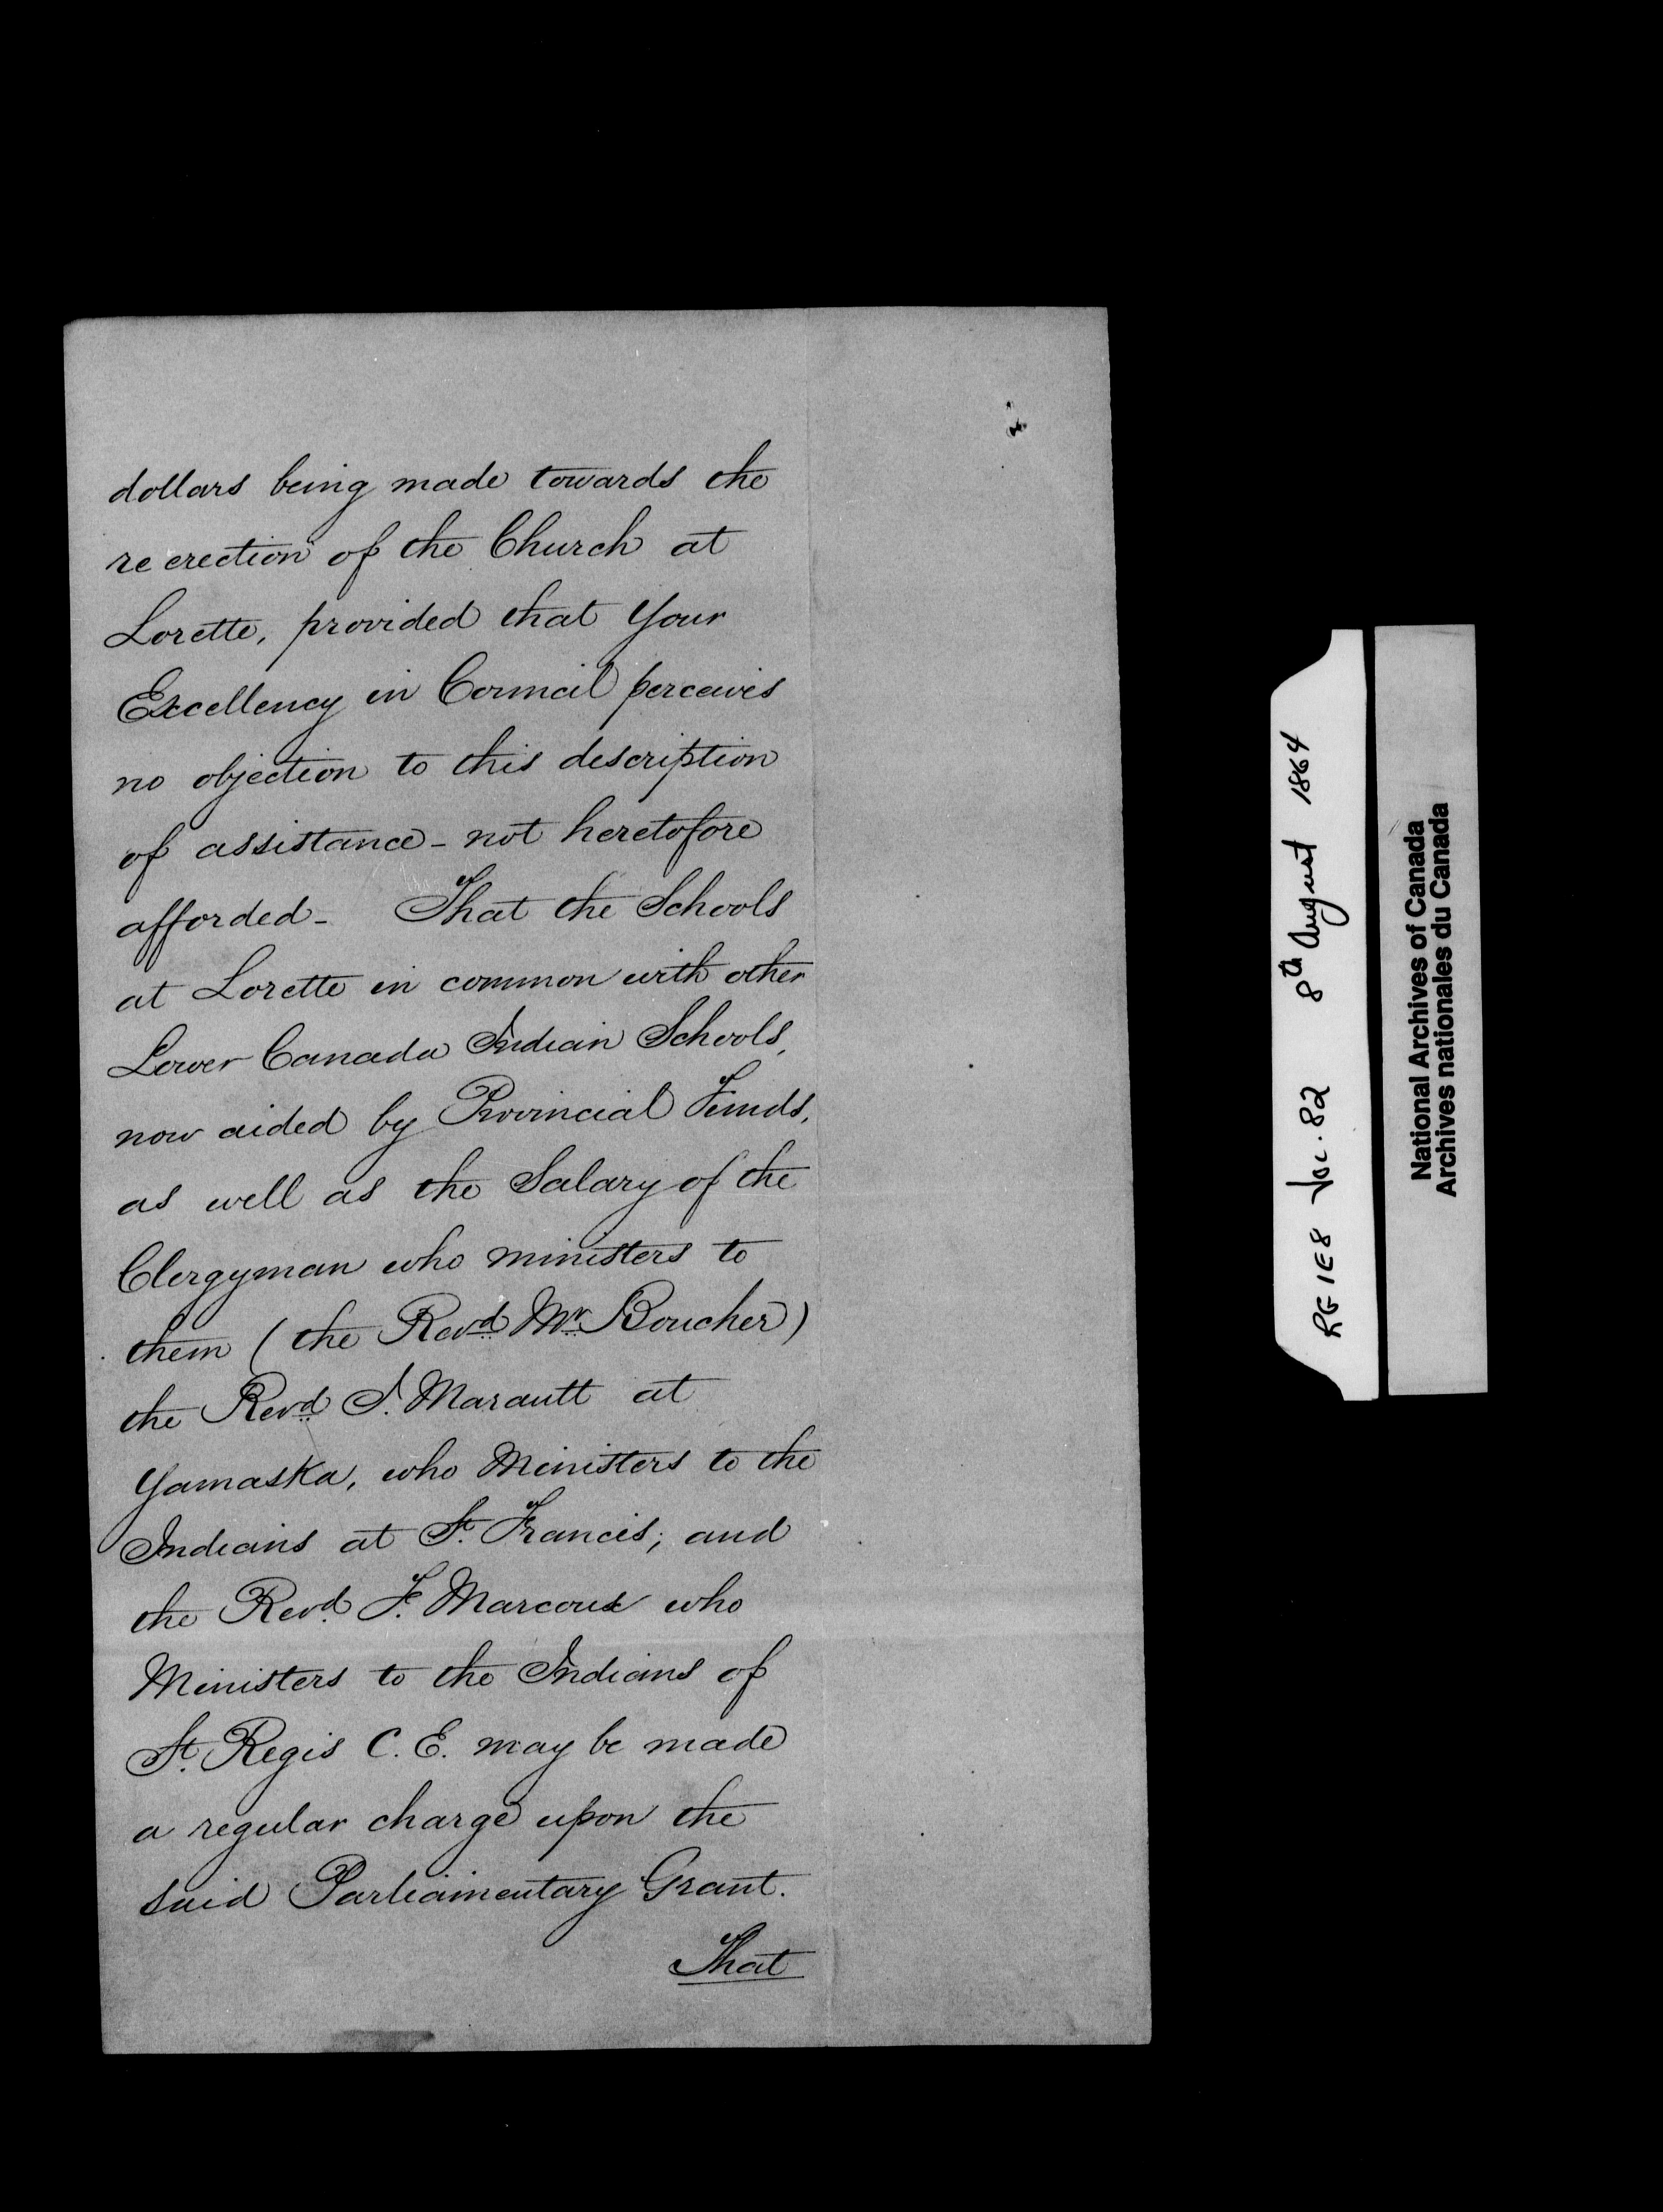 dollars being made towards the
re erection of the Church at
Lorette, provided that Your
Excellency in Council perceives
no objection to this description
of assistance - not heretofore
afforded - That the Schools
at Lorette in common with other
Lower Canada Indian Schools,
now aided by Provincial Funds,
as well as the Salary of the
Clergyman who ministers to
them (the Revd Mr Boucher)
the Revd J. Marault at
Yamaska, who Ministers to the
Indians at St. Francis; and
the Revd. F. Marcoux who
Ministers to the Indians of
St. Regis C. E. may be made
a regular charge upon the
said Parliamentary Grant.
That
RG 1E8 Vol. 82 8th August 1864
National Archives of Canada
Archives nationales du Canada